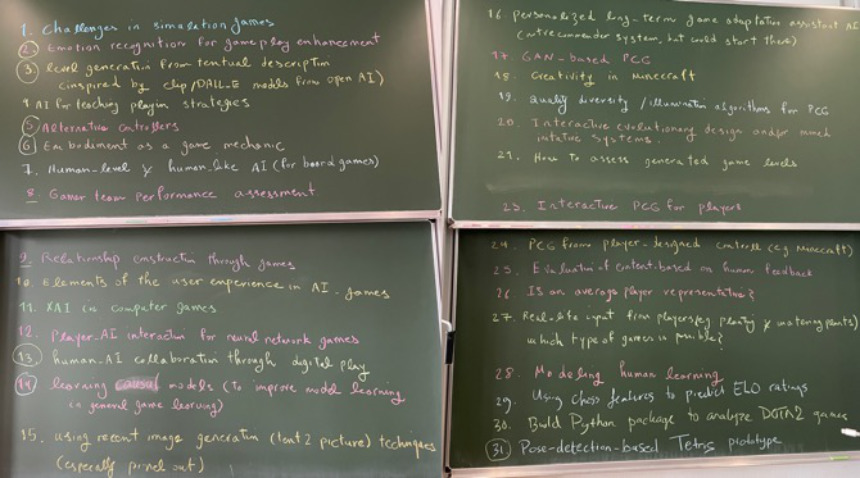 1. Challenges in simulation games
2. Emotion recognition for gameplay enhancement
3. level generation from textual description
(inspired by clip/DALL-E models from open AI)
4 AI for teaching playing strategies
5 Alternative controllers
6 Embodiment as a game mechanic
7. Human-level & human-like AI (for board games)
8. Gamer team performance assessment.
9. Relationship construction through games
10. Elements of the user experience in AI games
11. XAI in computer games
12. Player-AI interaction for neural network games
13. human-AI collaboration through digital play
14. learning causal models (to improve model learning
in general game learning)
15. using recent image generation (text 2 picture) techniques
(especially pixel art)
16. personalized long-term game adaptative assistant AI
system, but could start there)
17. GAN-based PCG
18. Creativity in Minecraft
19. quality diversity / illumination algorithms for PCG
20. Interactive evolutionary design and/or mixed
initiative systems.
21. How to assess generated game levels
23. Interactive PCG for players
24. PCG from player-designed content (eg Minecraft)
25. Evaluation of content based on human feedback
26. Is an average player representative?
27. Real-life input from players (eg planting & watering plants)
which type of games is possible?
28. Modeling human learning
29. Using chess features to predict ELO ratings
30. Build Python package to analyze DOTA2 games
31. Pose-detection-based Tetris prototype